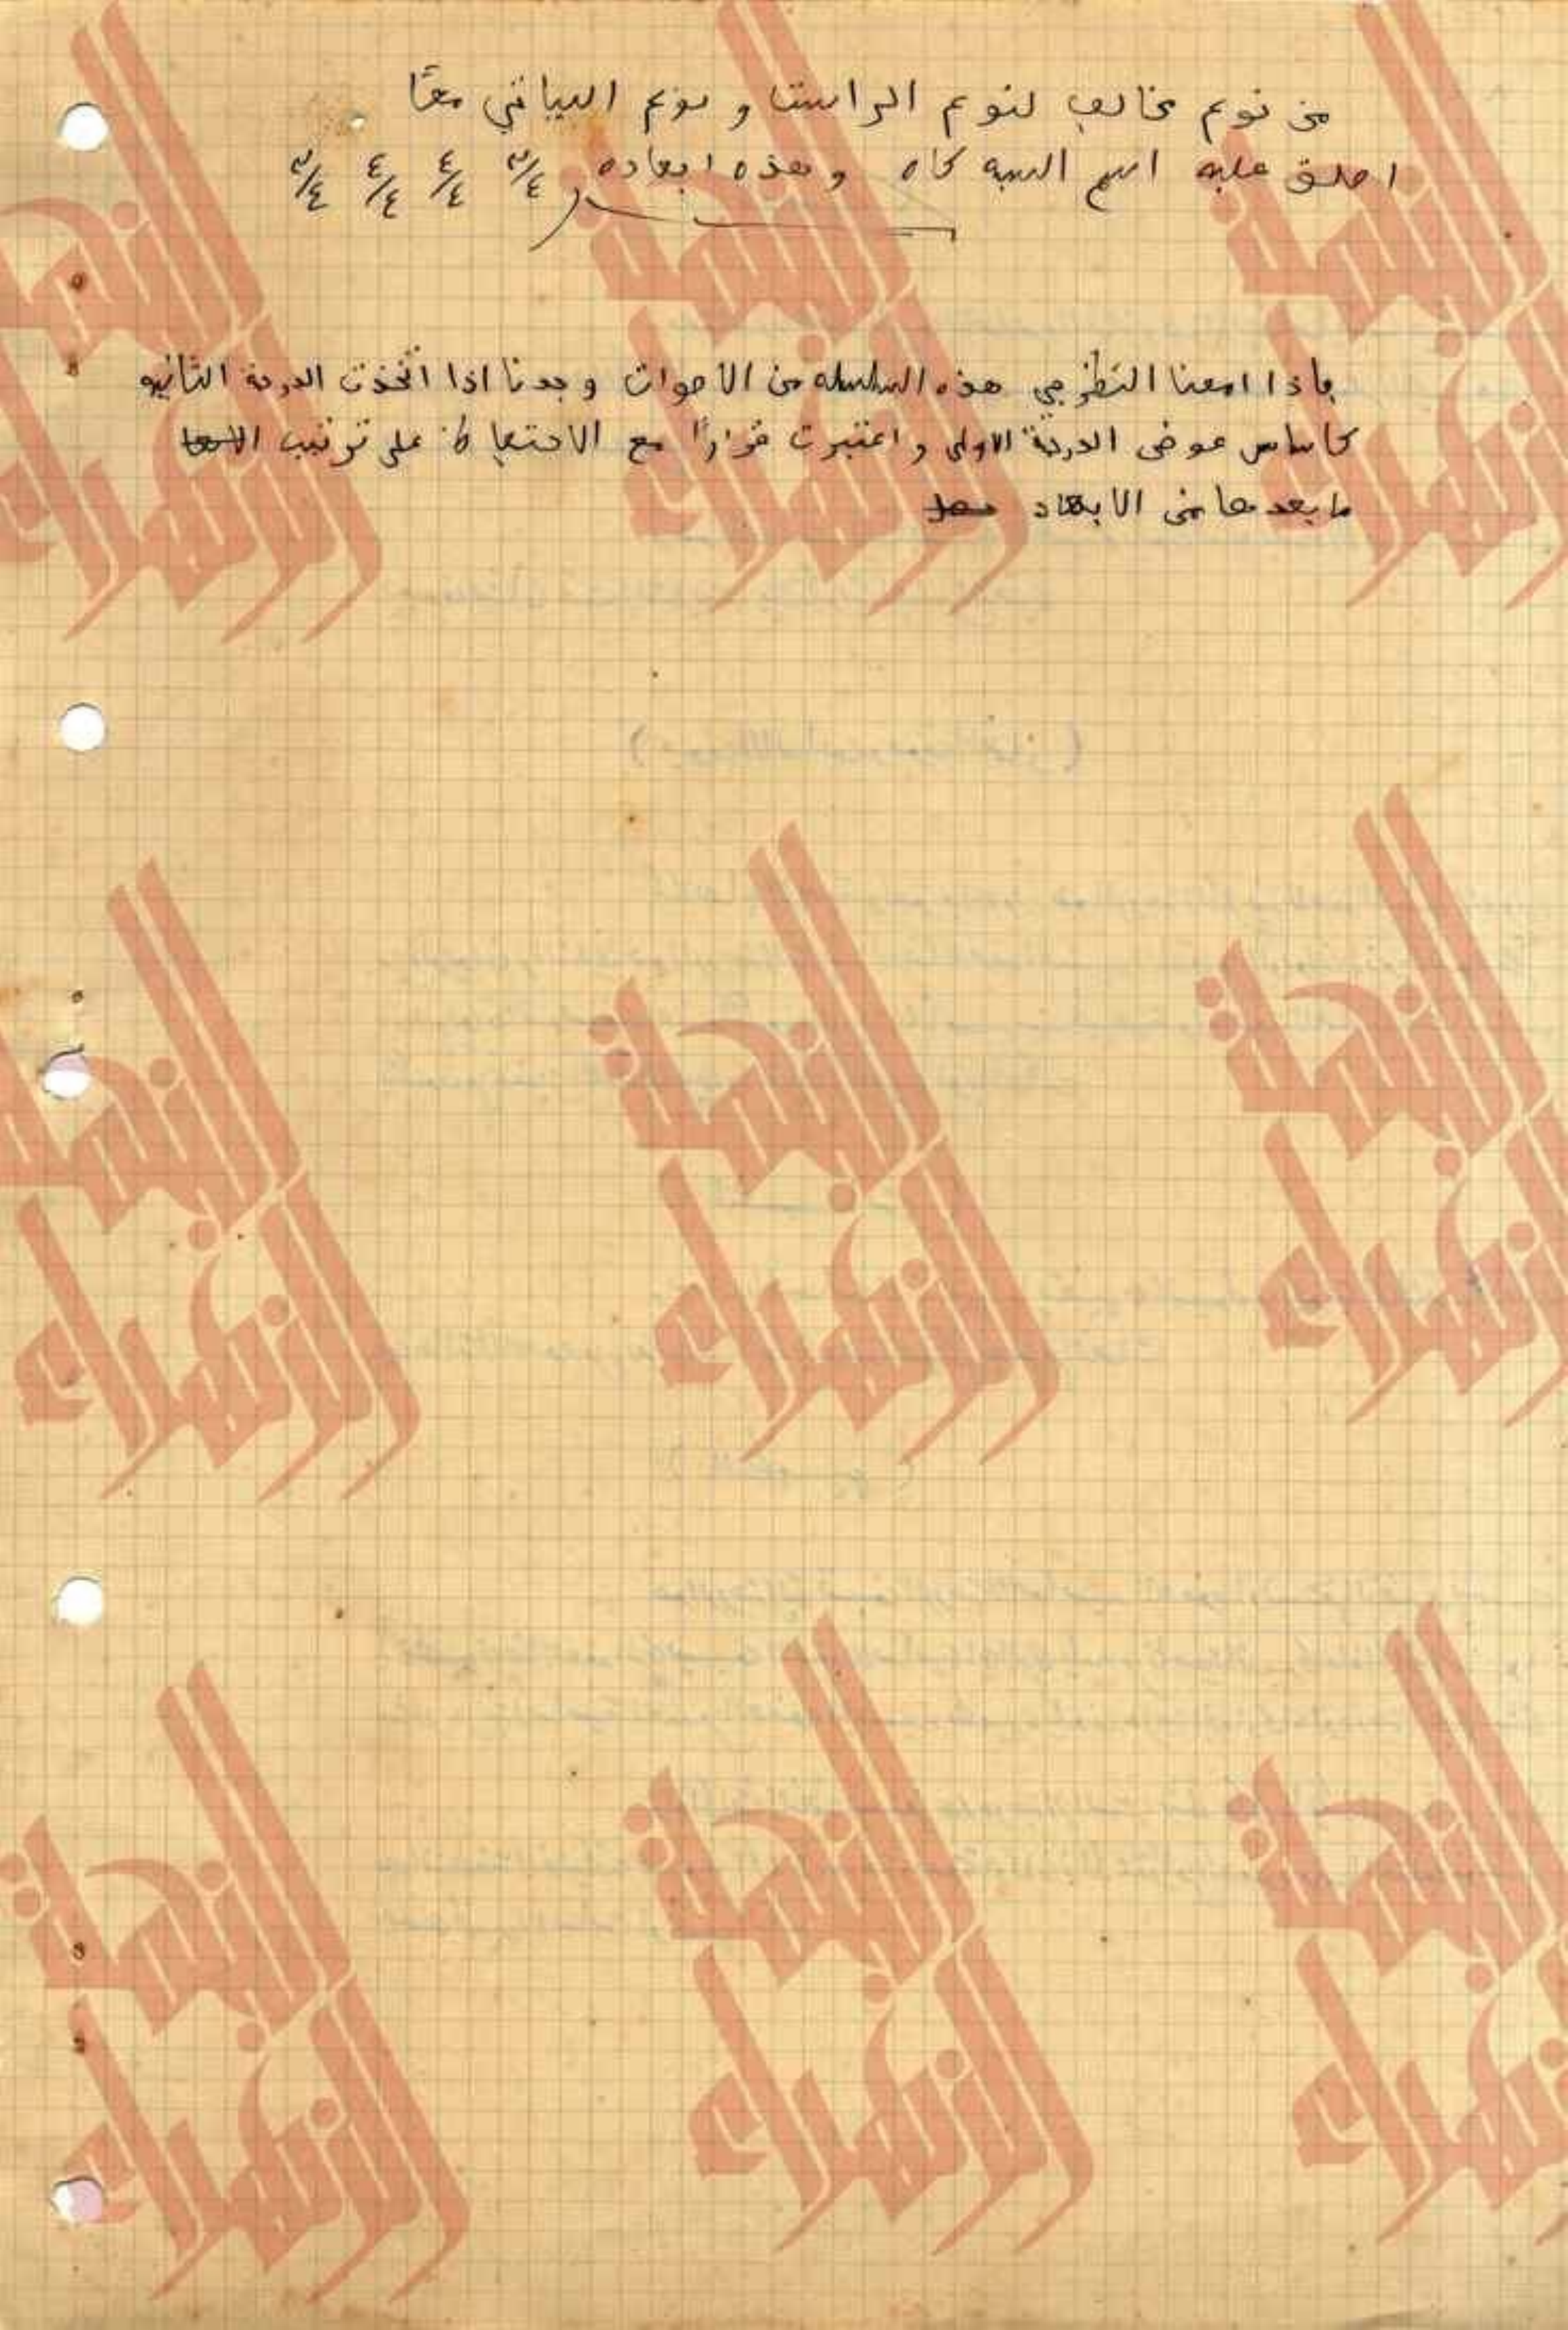 من نوع مخالف لنوع الراست و نوع البياتي معًا
اطلق عليه اسم السيه كاه وهذه ابعاده ٣/٤ ٤/٤ ٤/٤ ٣/٤
فاذا امعنا النظر في هذه السلسله من الاصوات وجدنا اذا اتخذت الدرجة الثانيه
كاساس عوض الدرجة الاولى واعتبرت قرارًا مع الاحتفاظ على ترتيب
ما بعدها من الابعاد
النهضة
الزهراء